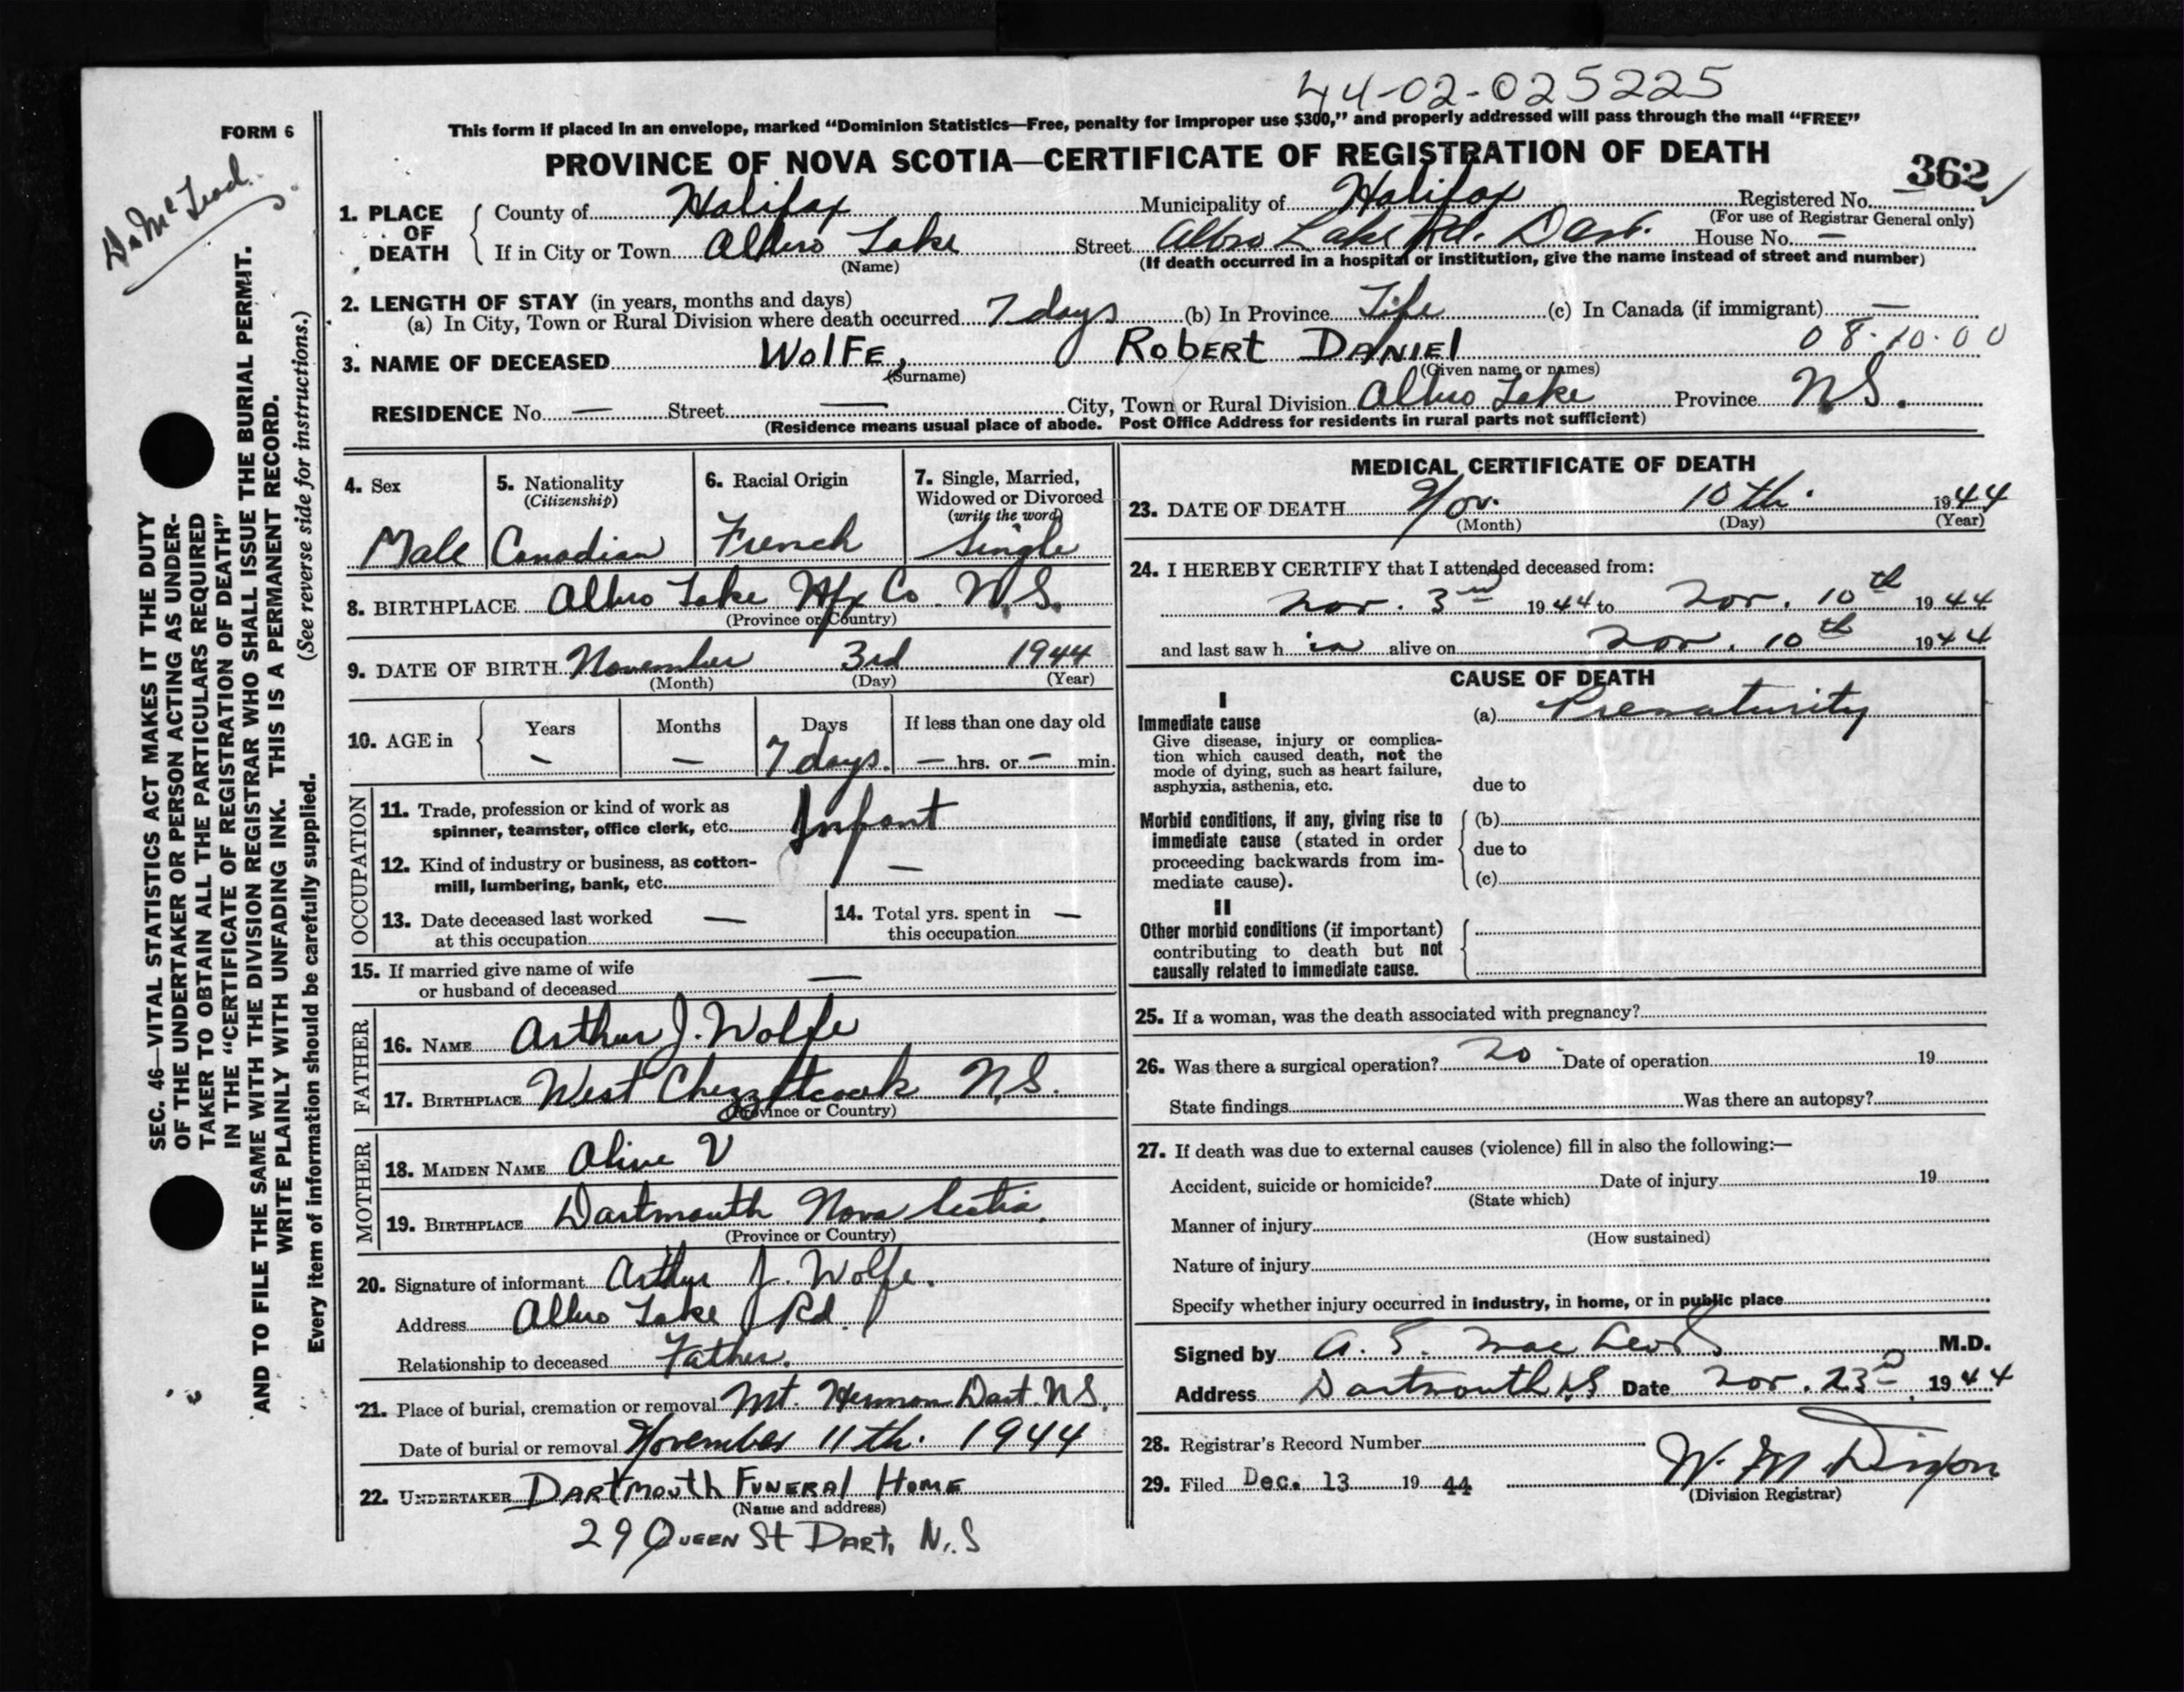 44-02-025225
FORM 6
This form if placed in an envelope, marked "Dominion Statistics—Free, penalty for improper use $300," and properly addressed will pass through the mail "FREE"
PROVINCE OF NOVA SCOTIA—CERTIFICATE OF REGISTRATION OF DEATH
362
1. PLACE OF DEATH
County of Halifax Municipality of Halifax Registered No.
(For use of Registrar General only)
If in City or Town Albro Lake Street Albro Lake Rd. Dart. House No. —
(Name) (If death occurred in a hospital or institution, give the name instead of street and number)
2. LENGTH OF STAY (in years, months and days)
(a) In City, Town or Rural Division where death occurred 7 days (b) In Province Life (c) In Canada (if immigrant) —
08.10.00
3. NAME OF DECEASED WOLFE, ROBERT DANIEL
(Surname) (Given name or names)
RESIDENCE No. — Street — City, Town or Rural Division Albro Lake Province N.S.
(Residence means usual place of abode. Post Office Address for residents in rural parts not sufficient)
4. Sex
Male
5. Nationality
(Citizenship)
Canadian
6. Racial Origin
French
7. Single, Married,
Widowed or Divorced
(write the word)
Single
8. BIRTHPLACE Albro Lake Hfx Co. N.S.
(Province or Country)
9. DATE OF BIRTH November 3rd 1944
(Month) (Day) (Year)
10. AGE in
Years Months Days If less than one day old
— — 7 days. — hrs. or — min.
OCCUPATION
11. Trade, profession or kind of work as
spinner, teamster, office clerk, etc. Infant
12. Kind of industry or business, as cotton-
mill, lumbering, bank, etc. —
13. Date deceased last worked —
at this occupation
14. Total yrs. spent in —
this occupation
15. If married give name of wife —
or husband of deceased
FATHER
16. NAME Arthur J. Wolfe
17. BIRTHPLACE West Chezzetcook N.S.
(Province or Country)
MOTHER
18. MAIDEN NAME Olive V
19. BIRTHPLACE Dartmouth Nova Scotia.
(Province or Country)
20. Signature of informant Arthur J. Wolfe.
Address Albro Lake Rd.
Relationship to deceased Father.
21. Place of burial, cremation or removal Mt. Hermon Dart. N.S.
Date of burial or removal November 11th. 1944
22. UNDERTAKER DARTMOUTH FUNERAL HOME
(Name and address)
29 QUEEN ST DART, N.S
MEDICAL CERTIFICATE OF DEATH
23. DATE OF DEATH Nov. 10th. 1944
(Month) (Day) (Year)
24. I HEREBY CERTIFY that I attended deceased from:
Nov. 3rd 1944 to Nov. 10th 1944
and last saw h im alive on Nov. 10th 1944
CAUSE OF DEATH
I
Immediate cause (a) Prematurity
Give disease, injury or complica-
tion which caused death, not the
mode of dying, such as heart failure,
asphyxia, asthenia, etc. due to
Morbid conditions, if any, giving rise to (b)
immediate cause (stated in order due to
proceeding backwards from im-
mediate cause). (c)
II
Other morbid conditions (if important)
contributing to death but not
causally related to immediate cause.
25. If a woman, was the death associated with pregnancy?
26. Was there a surgical operation? No Date of operation 19
State findings Was there an autopsy?
27. If death was due to external causes (violence) fill in also the following:—
Accident, suicide or homicide? Date of injury 19
(State which)
Manner of injury
(How sustained)
Nature of injury
Specify whether injury occurred in industry, in home, or in public place
Signed by A. S. MacLeod M.D.
Address Dartmouth N.S Date Nov. 23rd, 1944
28. Registrar's Record Number
29. Filed Dec. 13 1944 W. M. Dixon
(Division Registrar)
Dr McLeod.
SEC. 46—VITAL STATISTICS ACT MAKES IT THE DUTY
OF THE UNDERTAKER OR PERSON ACTING AS UNDER-
TAKER TO OBTAIN ALL THE PARTICULARS REQUIRED
IN THE "CERTIFICATE OF REGISTRATION OF DEATH"
AND TO FILE THE SAME WITH THE DIVISION REGISTRAR WHO SHALL ISSUE THE BURIAL PERMIT.
WRITE PLAINLY WITH UNFADING INK. THIS IS A PERMANENT RECORD.
Every item of information should be carefully supplied. (See reverse side for instructions.)